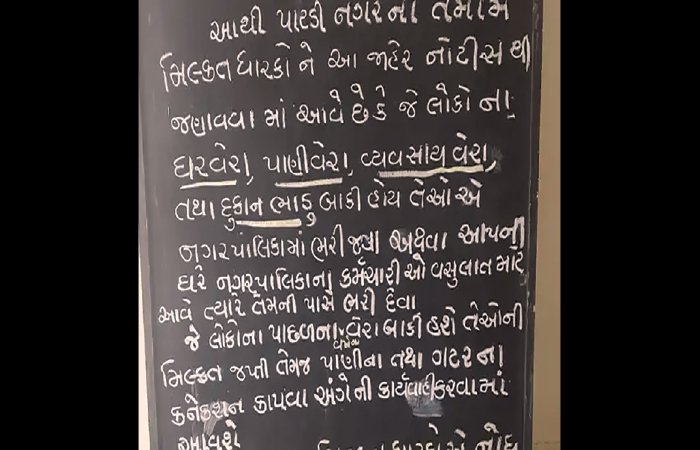 આથી પાટડી નગરના તમામ
મિલ્કત ધારકો ને આ જાહેર નોટીસ થી
જણાવવા માં આવે છેકે જે લોકો ના
ઘરવેરા, પાણીવેરા, વ્યવસાય વેરા,
તથા દુકાન ભાડુ બાકી હોય તેઓ એ
નગરપાલિકામાં ભરી જવા અથવા આપની
ઘરે નગરપાલિકાના કર્મચારી ઓ વસુલાત માટે
આવે ત્યારે તેમની પાસે ભરી દેવા
જે લોકોના પાછળના વર્ષના વેરા બાકી હશે તેઓની
મિલ્કત જપ્તી તેમજ પાણીના તથા ગટર ના
કનેકશન કાપવા અંગેની કાર્યવાહી કરવામાં
આવશે
નોંધ